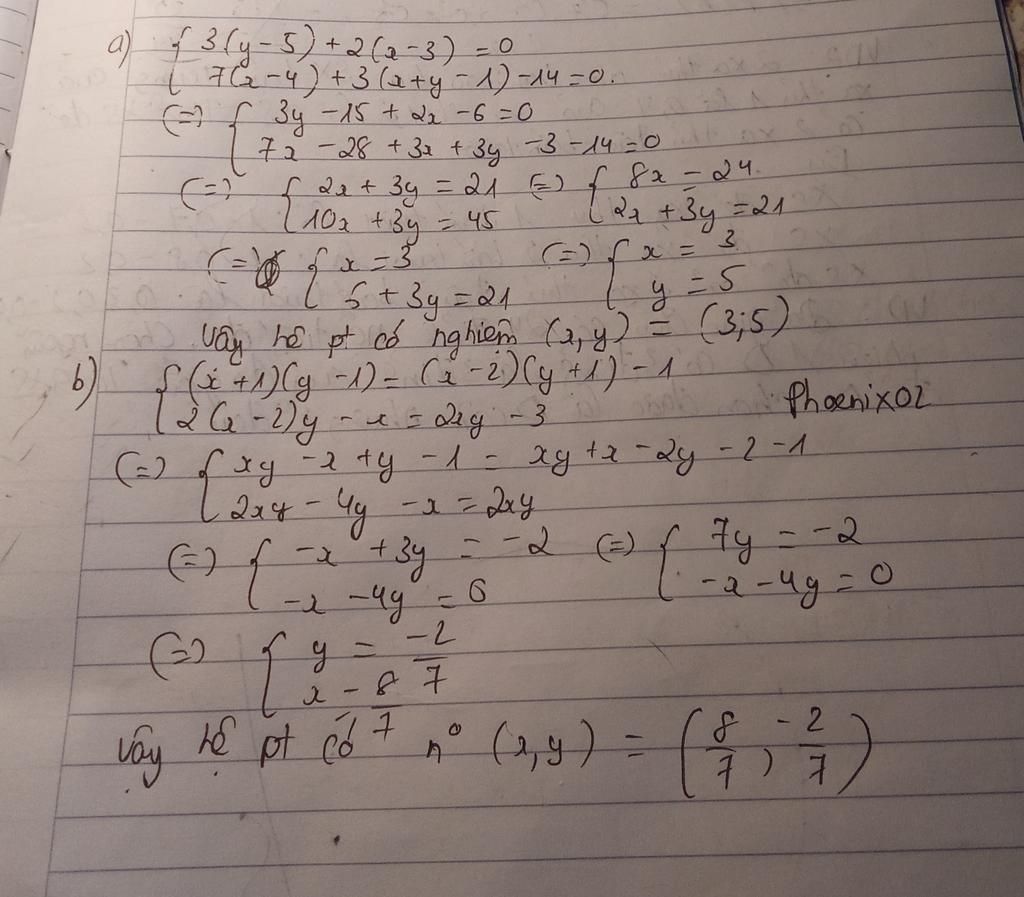 a) { 3(y-5) + 2(x-3) = 0
7(x-4) + 3(x+y-1) -14 = 0.
(=) { 3y -15 + 2x -6 = 0
7x -28 + 3x + 3y -3 -14 = 0
(=) { 2x + 3y = 21 (=) { 8x = 24
10x + 3y = 45 2x + 3y = 21
(=) { x = 3 (=) { x = 3
6 + 3y = 21 y = 5
Vậy hệ pt có nghiệm (x,y) = (3;5)
b) { (x+1)(y-1) = (x-2)(y+1) -1
2(x-2)y - x = 2xy - 3
Phoenix02
(=) { xy -x +y -1 = xy +x -2y -2 -1
2xy - 4y -x = 2xy
(=) { -x +3y = -2 (=) { 7y = -2
-x -4y = 0 -x -4y = 0
(=) { y = -2/7
x = 8/7
Vậy hệ pt có n⁰ (x,y) = (8/7, -2/7)